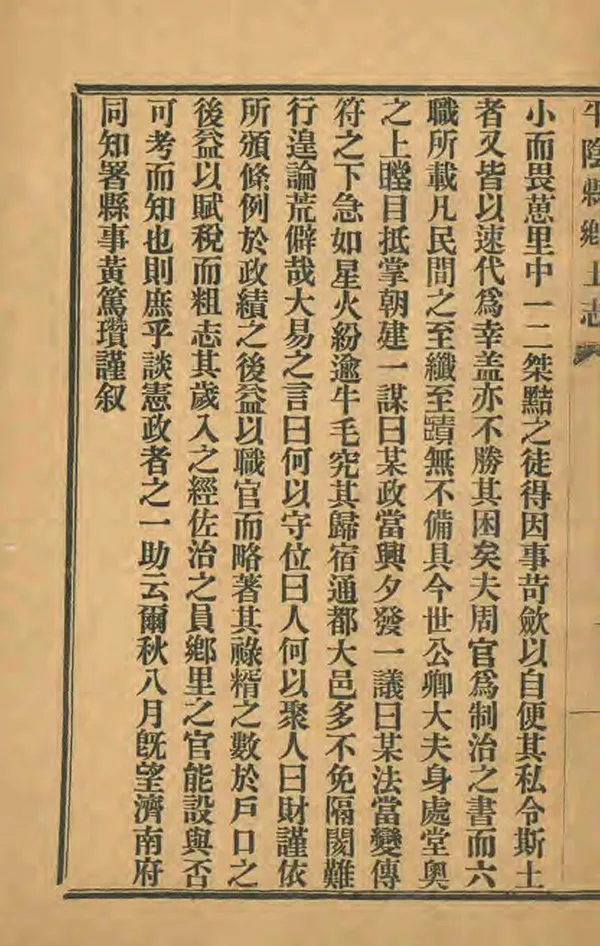 平陰縣鄉土志
小而畏葸里中一二桀黠之徒得因事苛歛以自便其私令斯土
者又皆以速代爲幸盖亦不勝其困矣夫周官爲制治之書而六
職所載凡民間之至纖至賾無不備具今世公卿大夫身處堂奧
之上瞠目抵掌朝建一謀曰某政當興夕發一議曰某法當變傳
符之下急如星火紛逾牛毛究其歸宿通都大邑多不免隔閡難
行遑論荒僻哉大易之言曰何以守位曰人何以聚人曰財謹依
所頒條例於政績之後益以職官而略著其祿糈之數於戶口之
後益以賦稅而粗志其歲入之經佐治之員鄉里之官能設與否
可考而知也則庶乎談憲政者之一助云爾秋八月旣望濟南府
同知署縣事黃篤瓚謹叙